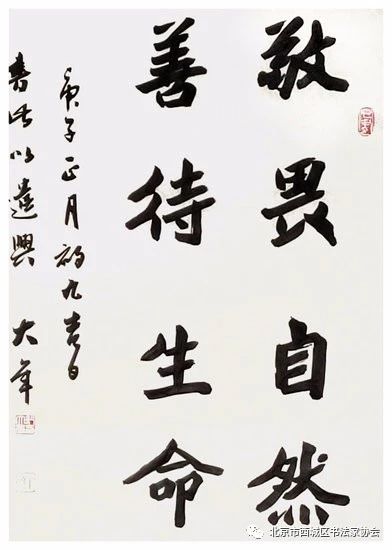 敬畏自然
善待生命
庚子正月初九吉日
书此以遣兴 大年
北京市西城区书法家协会